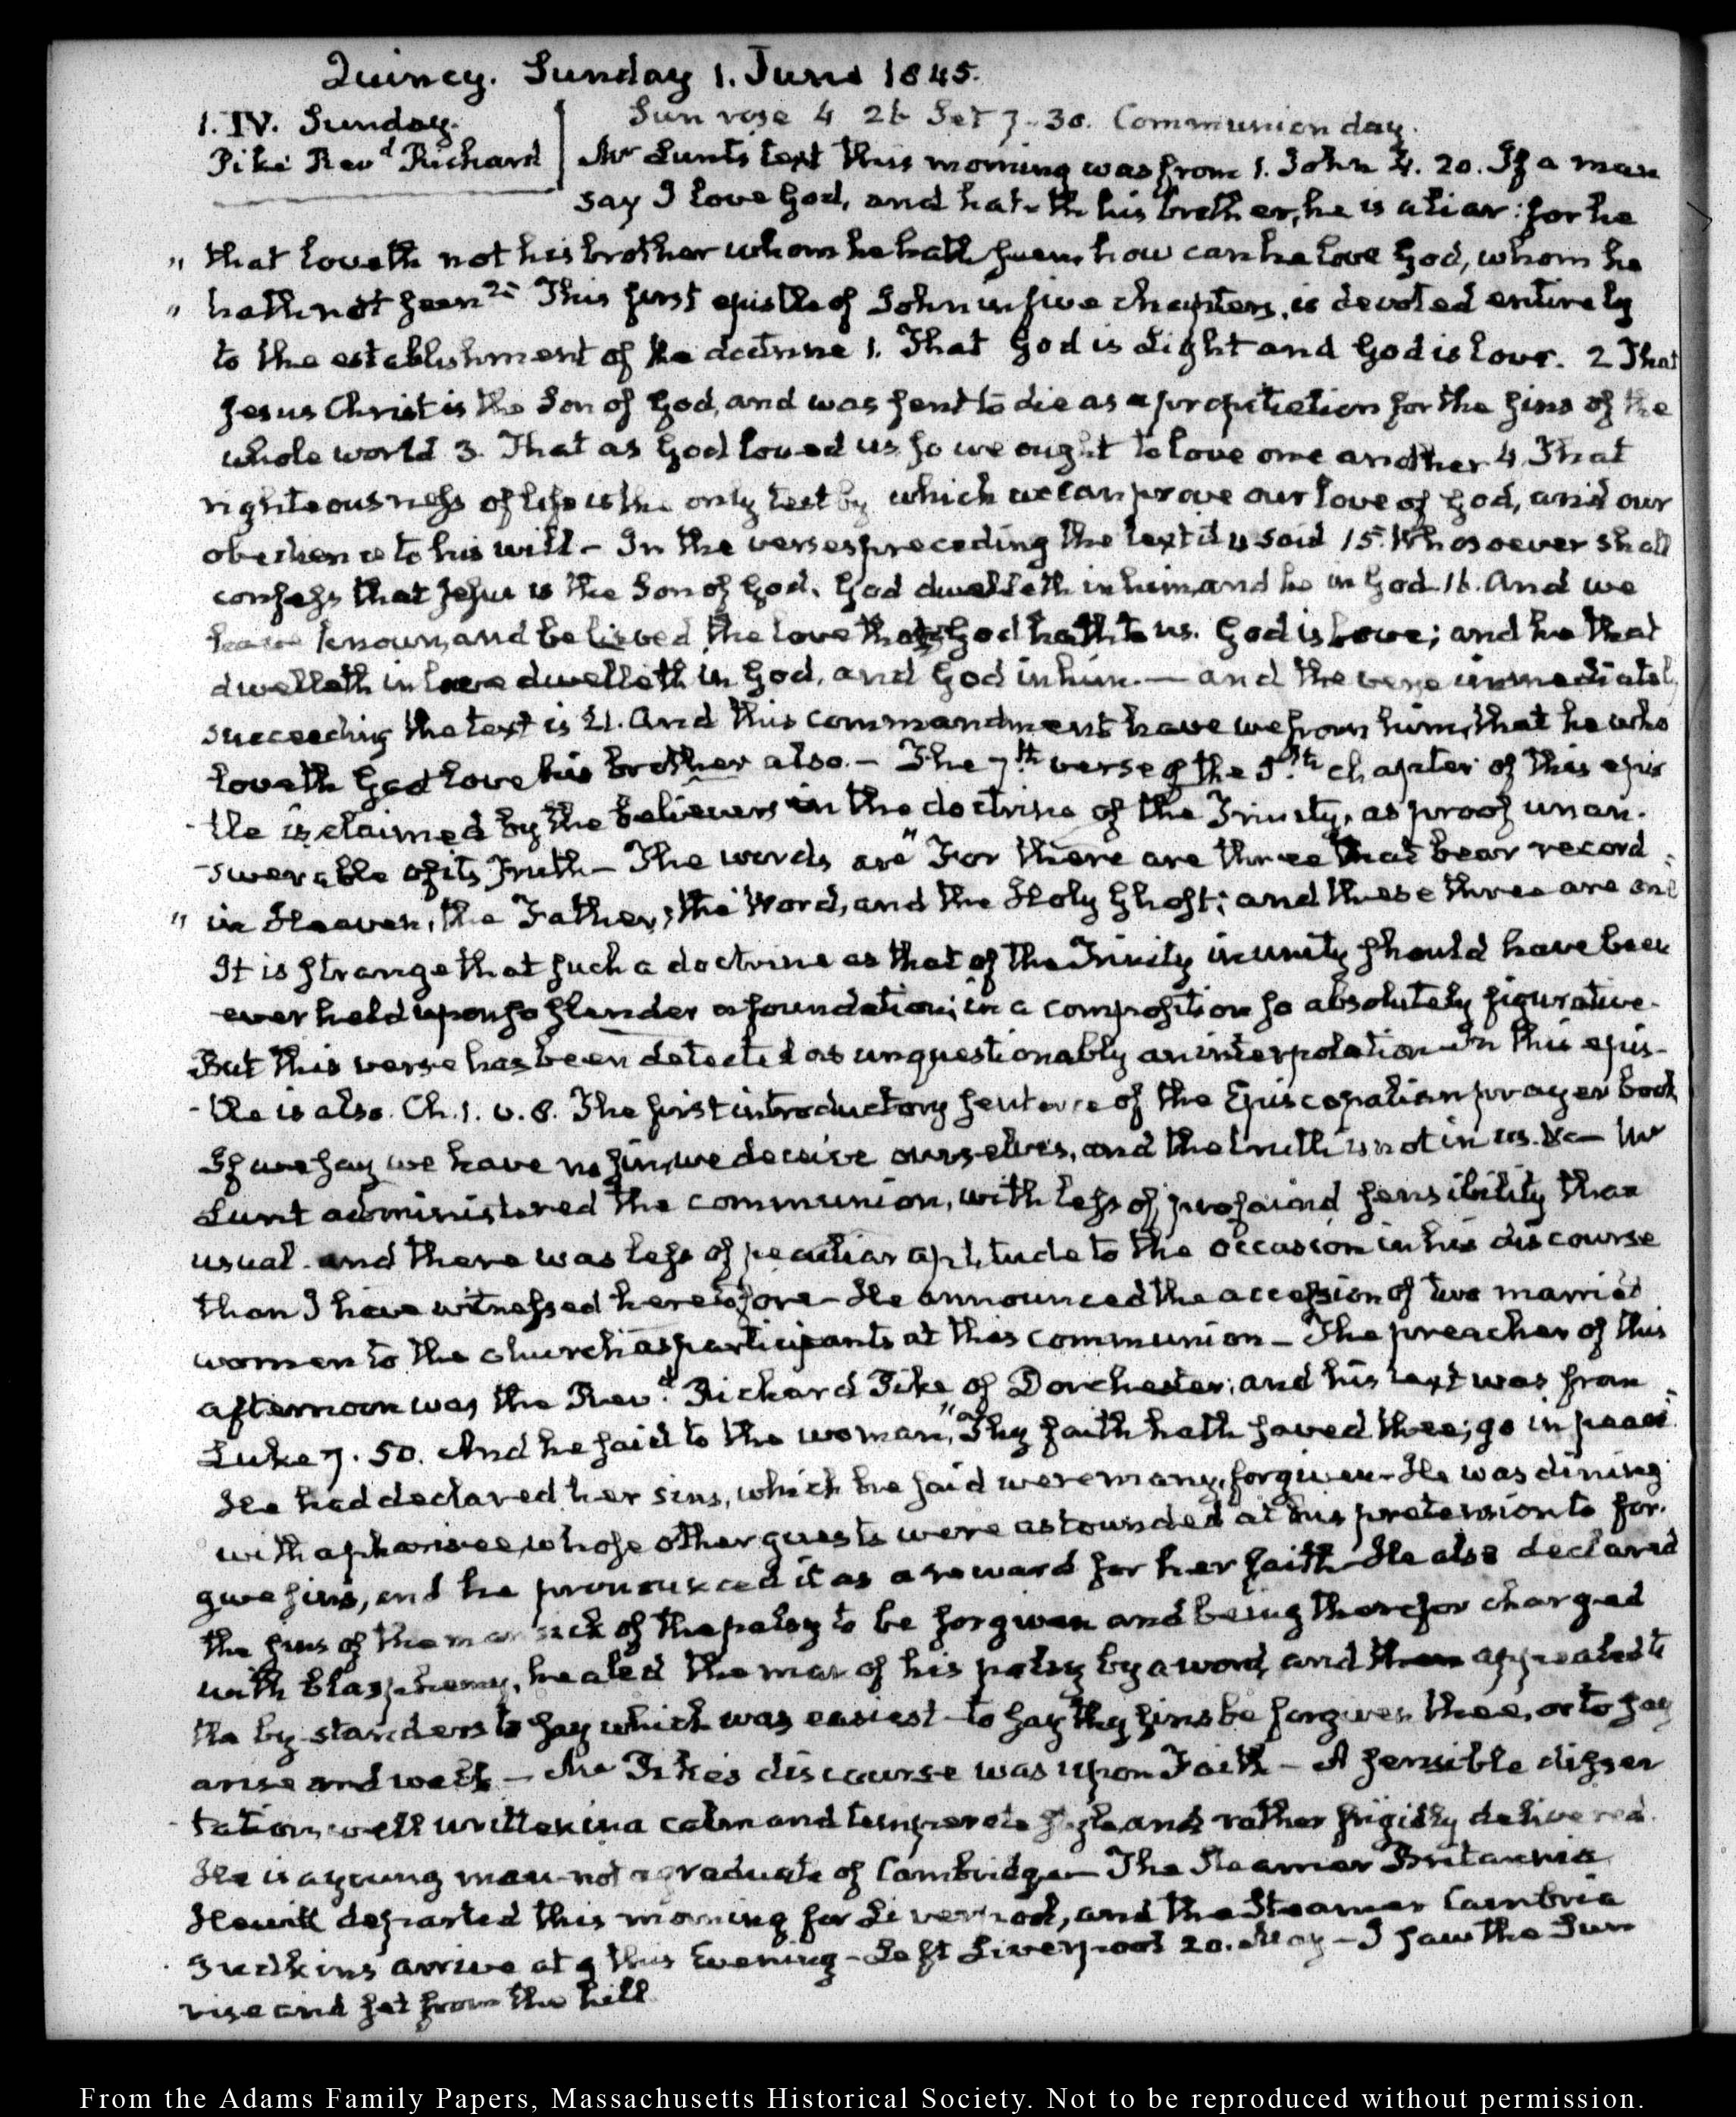 Quincy. Sunday 1. June 1845.
1. IV. Sunday.
Pike Revd Richard
Sun rose 4 26 Set 7-30. Communion day.
Mr Lunt's text this morning was from 1. John 4. 20. If a man
say I love God, and hateth his brother, he is a liar: for he
" that loveth not his brother whom he hath seen, how can he love God, whom he
" hath not seen? This first epistle of John in five chapters, is devoted entirely
to the establishment of the doctrine 1. That God is Light and God is love. 2 That
Jesus Christ is the Son of God, and was sent to die as a propitiation for the sins of the
whole world 3. That as God loved us so we ought to love one another 4. That
righteousness of life is the only test by which we can prove our love of God, and our
obedience to his will - In the verses preceding the text it is said 15. Whosoever shall
confess that Jesus is the Son of God, God dwelleth in him, and he in God. 16. And we
have known, and believed the love that God hath to us. God is love; and he that
dwelleth in love dwelleth in God, and God in him. — and the verse immediately
succeeding the text is 21. And this commandment have we from him, that he who
loveth God love his brother also. - The 7th verse of the 5th chapter of this epis
-tle is claimed by the believers in the doctrine of the Trinity, as proof unan-
-swerable of its Truth - The words are "For there are three that bear record
" in Heaven, the Father, the Word, and the Holy Ghost; and these three are one
It is strange that such a doctrine as that of the Trinity in unity should have been
ever held upon so slender a foundation; in a composition so absolutely figurative.
But this verse has been detected as unquestionably an interpolation - In this epis-
-tle is also. Ch. 1. v. 8. The first introductory sentence of the Episcopalian prayer book
If we say we have no sin, we deceive ourselves, and the truth is not in us. &c - Mr
Lunt administered the communion, with less of profound sensibility than
usual and there was less of peculiar aptitude to the occasion in his discourse
than I have witnessed heretofore - He announced the accession of two married
women to the church as participants at this communion - The preacher of this
afternoon was the Revd. Richard Pike of Dorchester; and his text was from
Luke 7. 50. And he said to the woman, "Thy faith hath saved thee; go in peace.
He had declared her sins, which he said were many, forgiven - He was dining
with a pharisee, whose other guests were astounded at his pretension to for-
give sins, and he pronounced it as a reward for her faith - He also declared
the sins of the man sick of the palsy to be forgiven and being therefor charged
with blasphemy, healed the man of his palsy by a word, and then appealed to
the by-standers to say which was easiest - to say thy sins be forgiven thee, or to say
arise and walk - Mr Pike's discourse was upon Faith - A sensible disser
-tation, well written in a calm and temperate style, and rather frigidly delivered.
He is a young man not a graduate of Cambridge - The Steamer Britannia
Hewitt departed this morning for Liverpool, and the Steamer Cambria
Judkins arrive at 9 this Evening - Left Liverpool 20. May - I saw the Sun
rise and set from the hill
From the Adams Family Papers, Massachusetts Historical Society. Not to be reproduced without permission.